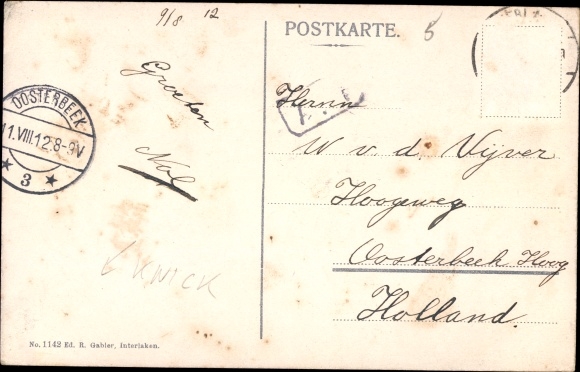 9/8 12
POSTKARTE.
5
OOSTERBEEK
11.VIII.12.8-9V
3
Groeten
Nol
KNICK
Herrn
W v. d. Vijver
Hoogeweg
Oosterbeek Hoog
Holland.
No. 1142 Ed. R. Gabler, Interlaken.